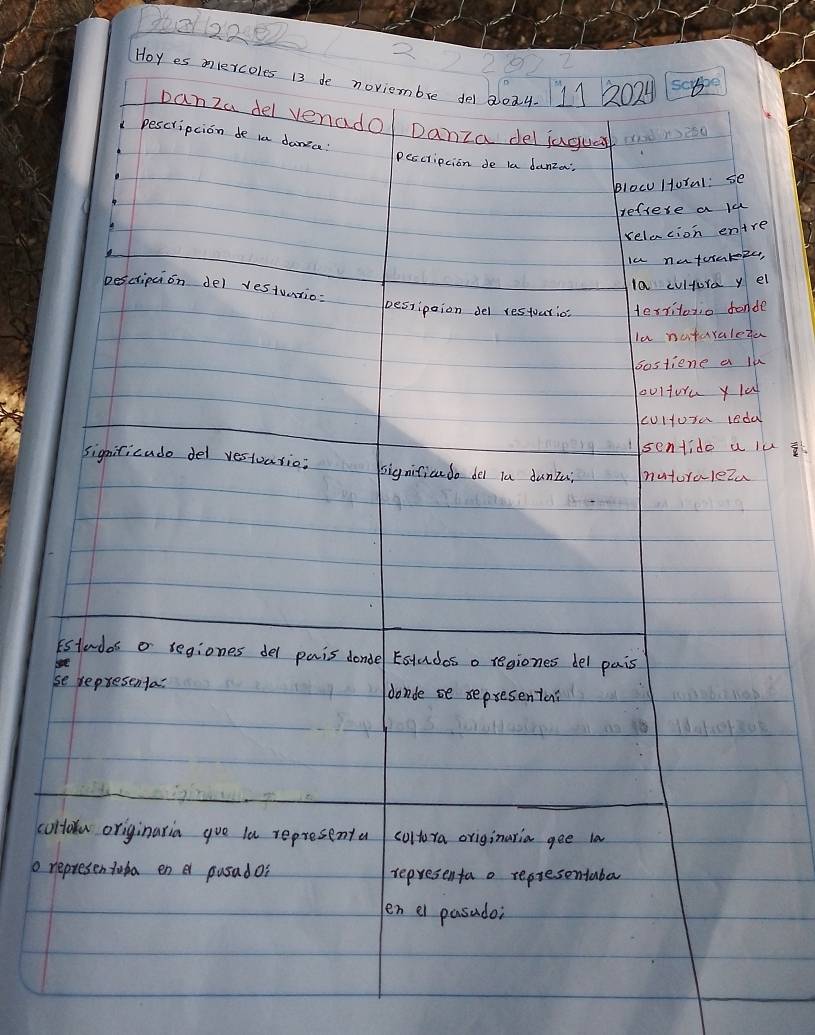 Hoy es miercoles 13 de noviembre del 2024. 11 2024 Scribe
Danza del venado
Descripción de la danza:
Descripción del vestuario:
significado del vestuario:
Estados o regiones del pais donde
se
se representa:
cultura originaria que la representa
o representaba en el pasado:
Danza del jaguar
Descripción de la danza:
Desripcion del vestuario:
significado del la danza:
Estados o regiones del pais
donde se representa:
cultura originaria gee la
representa o representaba
en el pasado:
Biocultural: se
refiere a la
relacion entre
la naturaleza,
la cultura y el
territorio donde
la naturaleza
sostiene a la
cultura y la
cultura leda
sentido a la
naturaleza